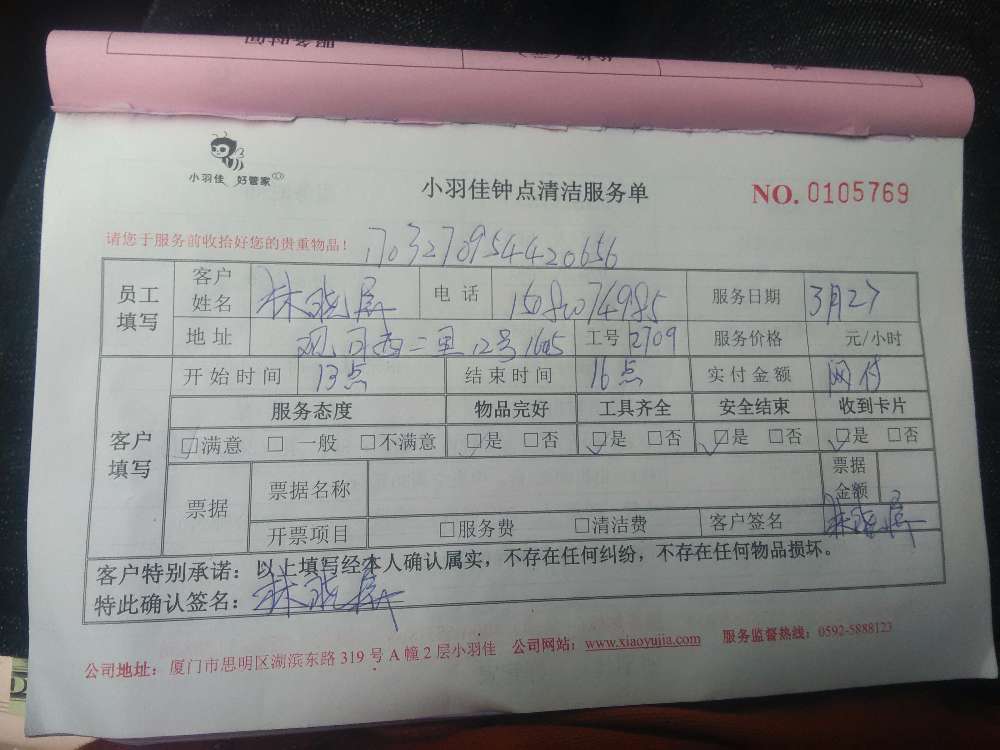 服务时间
小羽佳 好管家
小羽佳钟点清洁服务单
NO. 0105769
请您于服务前收拾好您的贵重物品！
1703270954420656
员工填写 客户姓名 林晓 电话 服务日期 3月27
地址 二里12号1605 工号 2709 服务价格 元/小时
客户填写 开始时间 13点 结束时间 16点 实付金额 网付
服务态度 物品完好 工具齐全 安全结束 收到卡片
☑满意 □ 一般 □不满意 ☑是 □否 ☑是 □否 ☑是 □否 ☑是 □否
票据 票据名称 票据金额
开票项目 □服务费 □清洁费 客户签名 林晓
客户特别承诺：以上填写经本人确认属实，不存在任何纠纷，不存在任何物品损坏。
特此确认签名：林晓
公司地址：厦门市思明区湖滨东路 319 号 A 幢 2 层小羽佳 公司网站：www.xiaoyujia.com 服务监督热线：0592-5888123